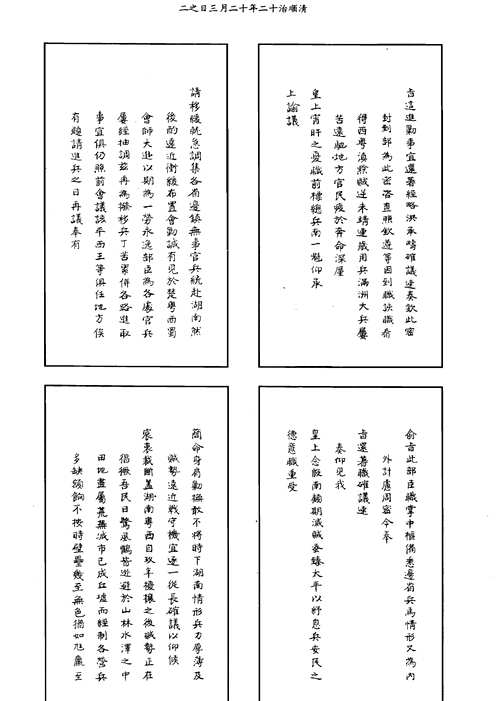 清順治十二年十二月三日之二
旨這進勦事宜還著經略洪承疇確議速奏欽此密
封到部為此密咨查照欽遵等因到職該職看
得西粵滇黔賊逆未靖連歲用兵滿洲大兵屢
苦遠馳地方官民疲於奔命深廑
皇上宵旰之憂職前標總兵南一魁仰承
上諭議
請移緩就急調集各省邊鎮無事官兵統赴湖南然
後酌遠近衝緩布置會勦誠有見於楚粵西蜀
會師大進以期為一勞永逸部臣為各處官兵
屢經抽調茲再為撥移兵丁苦累併各路進取
事宜俱仍照前會議該平西王等俱任地方俟
有題請進兵之日再議奏有
俞旨此部臣職掌中樞備悉邊省兵馬情形又為內
外計慮周密今奉
旨還著職確議速
奏仰見我
皇上念殷南顧期滅賊臻太平以紓息兵安民之
德意職重受
簡命身肩勦撫敢不將時下湖南情形兵力厚薄及
賊勢遠近戰守機宜逐一從長確議以仰候
宸衷裁蓋湖南粵西自擾攘之後賊勢正在
猖獗百民日驚風鶴皆逃避於山林水澤之中
田地盡屬荒蕪城市已成丘墟而經制各營兵
多缺額餉不按時壁壘幾至無色猶如尪羸至